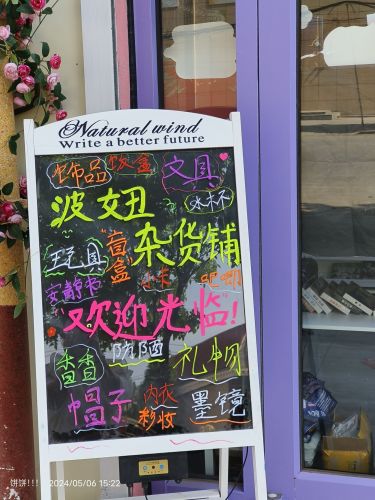 Natural wind
Write a better future
饰品 饭盒 文具
波妞
水杯
杂货铺
玩具
盲盒
安静书
小卡
欢迎光临!
香香
防晒
礼物
帽子
内衣
彩妆
墨镜
饼饼!!! 2024/05/06 15:22